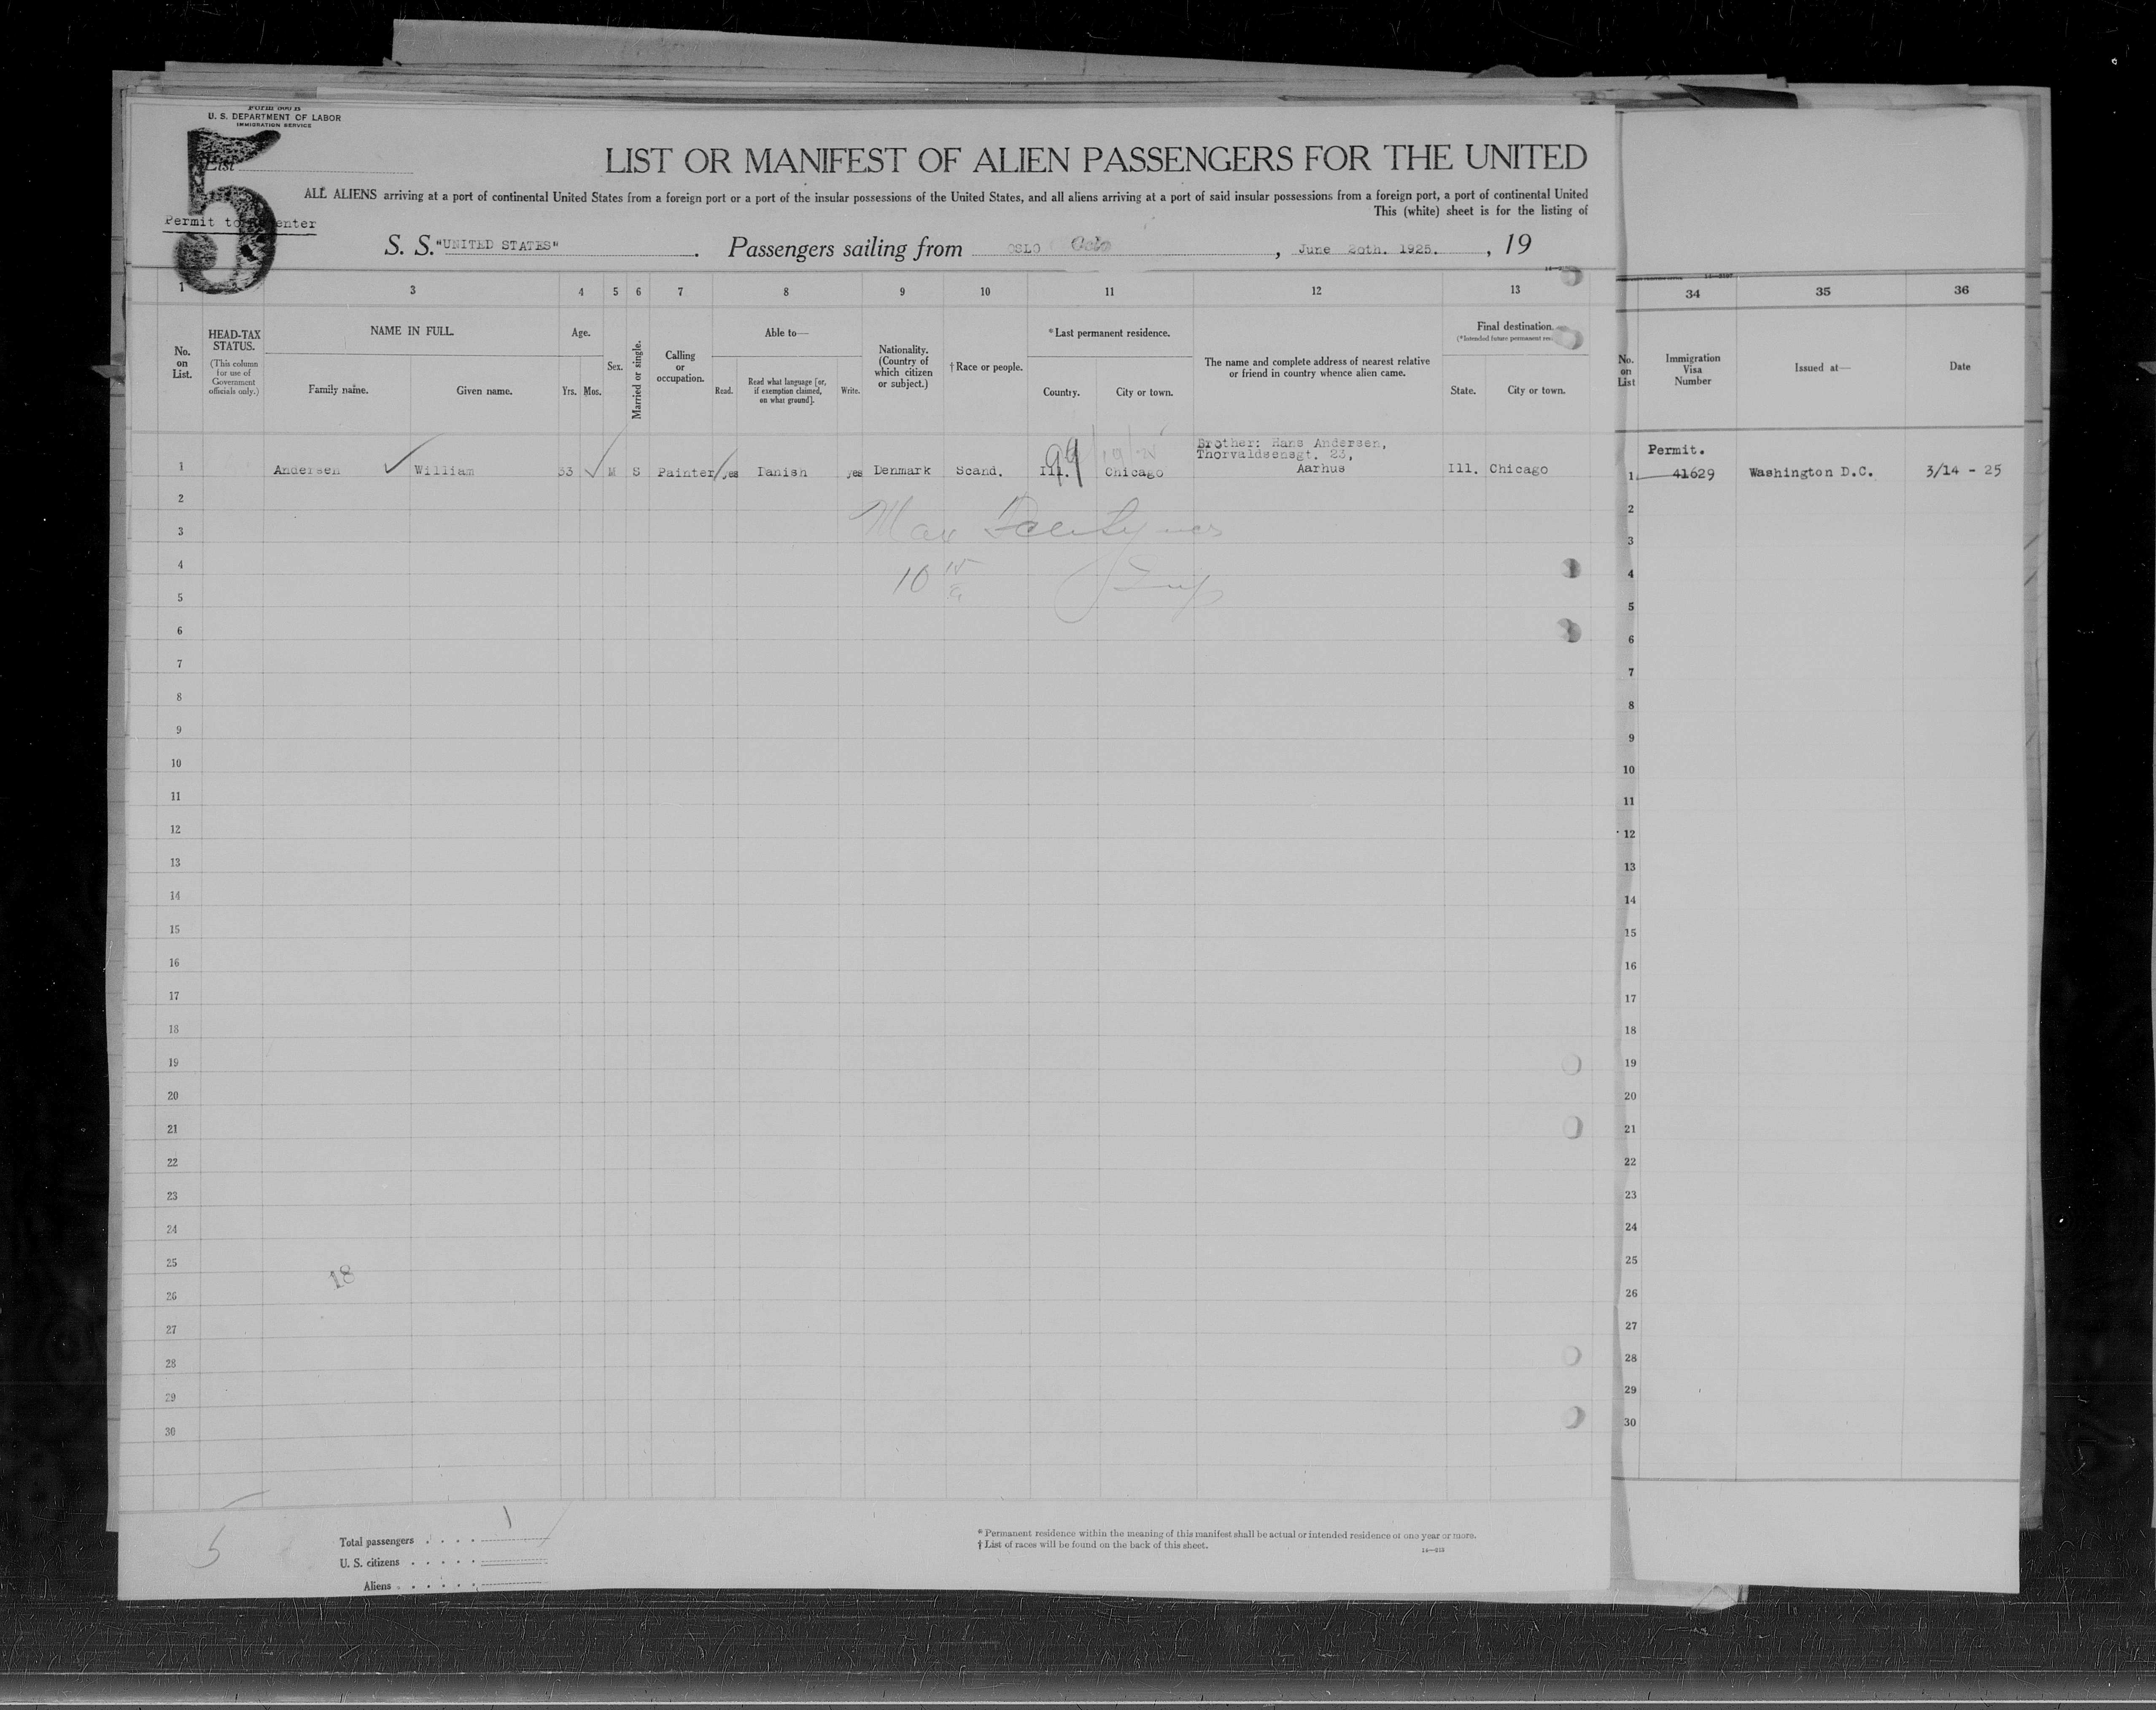 Form 500 B
U. S. DEPARTMENT OF LABOR
IMMIGRATION SERVICE
5
List
LIST OR MANIFEST OF ALIEN PASSENGERS FOR THE UNITED
ALL ALIENS arriving at a port of continental United States from a foreign port or a port of the insular possessions of the United States, and all aliens arriving at a port of said insular possessions from a foreign port, a port of continental United
This (white) sheet is for the listing of
Permit to enter
S. S. "UNITED STATES". Passengers sailing from OSLO Oslo, June 20th. 1925., 19
1 3 4 5 6 7 8 9 10 11 12 13 34 35 36
No. on List.
HEAD-TAX STATUS.
(This column for use of Government officials only.)
NAME IN FULL.
Family name. Given name.
Age.
Yrs. Mos.
Sex.
Married or single.
Calling or occupation.
Able to—
Read. Read what language [or, if exemption claimed, on what ground]. Write.
Nationality. (Country of which citizen or subject.)
†Race or people.
*Last permanent residence.
Country. City or town.
The name and complete address of nearest relative or friend in country whence alien came.
Final destination.
State. City or town.
No. on List
Immigration Visa Number
Issued at—
Date
Brother: Hans Andersen,
Thorvaldsensgt. 23,
1 Andersen William 33 M S Painter yes Danish yes Denmark Scand. Ill. Chicago Aarhus Ill. Chicago
99
Permit.
1 41629 Washington D.C. 3/14 - 25
2 2
3 3
4 4
5 5
6 6
7 7
8 8
9 9
10 10
11 11
12 12
13 13
14 14
15 15
16 16
17 17
18 18
19 19
20 20
21 21
22 22
23 23
24 24
25 25
18
26 26
27 27
28 28
29 29
30 30
5
Total passengers . . . . 1
U. S. citizens . . . . .
Aliens . . . . . .
* Permanent residence within the meaning of this manifest shall be actual or intended residence of one year or more.
† List of races will be found on the back of this sheet.